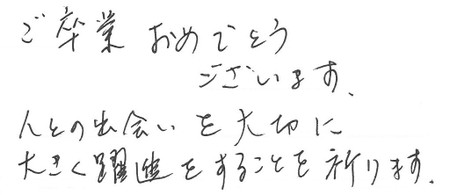 ご卒業おめでとう
ございます、
人との出会いを大切に
大きく躍進をすることを祈ります.